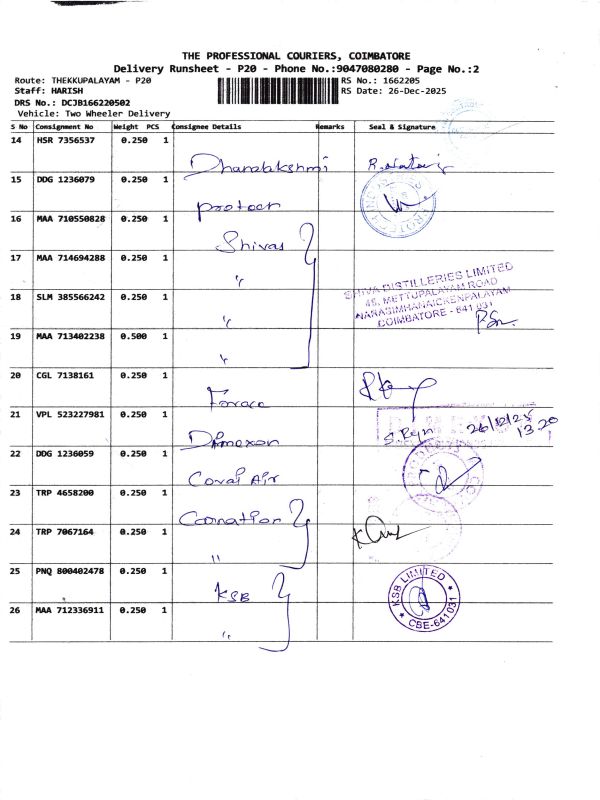 THE PROFESSIONAL COURIERS, COIMBATORE
Delivery Runsheet - P20 - Phone No.:9047080280 - Page No.:2
Route: THEKKUPALAYAM - P20
RS No.: 1662205
Staff: HARISH
RS Date: 26-Dec-2025
DRS No.: DCJB166220502
Vehicle: Two Wheeler Delivery
S No Consignment No Weight PCS Consignee Details Remarks Seal & Signature
14 HSR 7356537 0.250 1
Dhanalakshmi
15 DDG 1236079 0.250 1
16 MAA 710550828 0.250 1
Shivas
17 MAA 714694288 0.250 1
"
SHIVA DISTILLERIES LIMITED
45, METTUPALAYAM ROAD
NARASIMHANAICKENPALAYAM
COIMBATORE - 641 031
18 SLM 385566242 0.250 1
"
19 MAA 713402238 0.500 1
"
20 CGL 7138161 0.250 1
21 VPL 523227981 0.250 1
26/12/25
13.20
22 DDG 1236059 0.250 1
Coval Air
23 TRP 4658200 0.250 1
24 TRP 7067164 0.250 1
"
25 PNQ 800402478 0.250 1
KSB
KSB LIMITED
CBE-641031
26 MAA 712336911 0.250 1
"